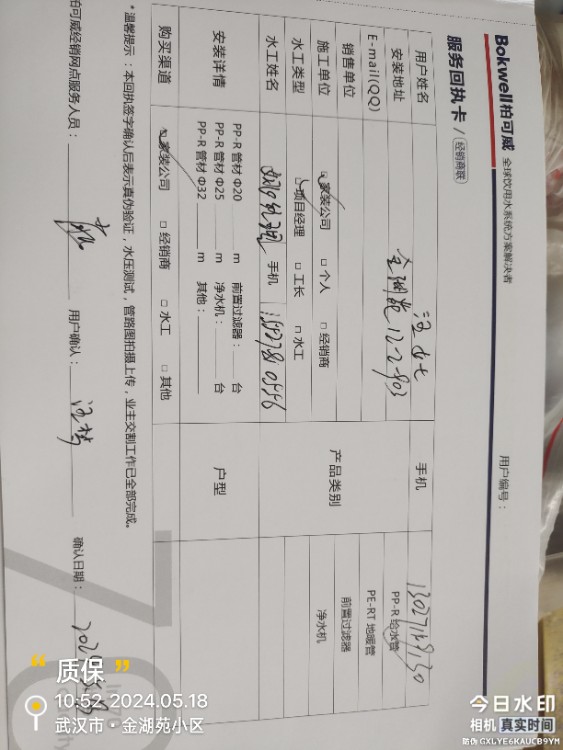 Bokwell柏可威 全球饮用水系统方案解决者
服务回执卡 / 经销商联
用户编号：
用户姓名 汪女士 手机
安装地址 金湖苑12-2-903
E-mail(QQ)
销售单位
施工单位 家装公司 □ 个人 □ 经销商
水工类型 项目经理 □ 工长 □ 水工
水工姓名 手机
产品类别 PP-R 给水管
PE-RT 地暖管
前置过滤器
净水机
安装详情
PP-R 管材 Φ20 m 前置过滤器： 台
PP-R 管材 Φ25 m 净水机： 台
PP-R 管材 Φ32 m 其他：
户型
购买渠道 家装公司 □ 经销商 □ 水工 □ 其他
*温馨提示：本回执签字确认后表示真伪验证，水压测试，管路图拍摄上传，业主交割工作已全部完成。
柏可威经销网点服务人员：
用户确认：
确认日期：
质保
10:52 2024.05.18
武汉市·金湖苑小区
今日水印
相机 真实时间
防伪 GXLYE6KAUCB9YM